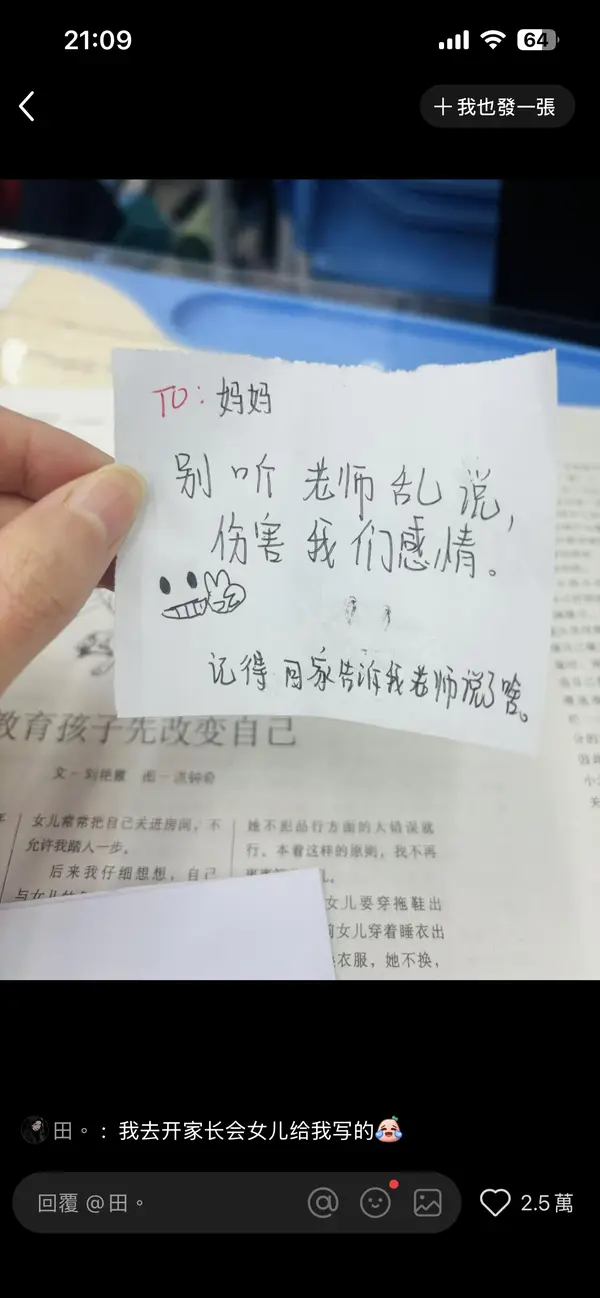 21:09
64
+我也發一張
TO: 妈妈
别听老师乱说,
伤害我们感情。
记得回家告诉我老师说了啥。
教育孩子先改变自己
女儿常常把自己关进房间，不
允许我踏入一步。
后来我仔细想想，自己
她不犯品行方面的大错误就
行。本着这样的原则，我不再
女儿要穿拖鞋出
女儿穿着睡衣出
衣服，她不换，
田。：我去开家长会女儿给我写的
回覆 @田。
2.5萬